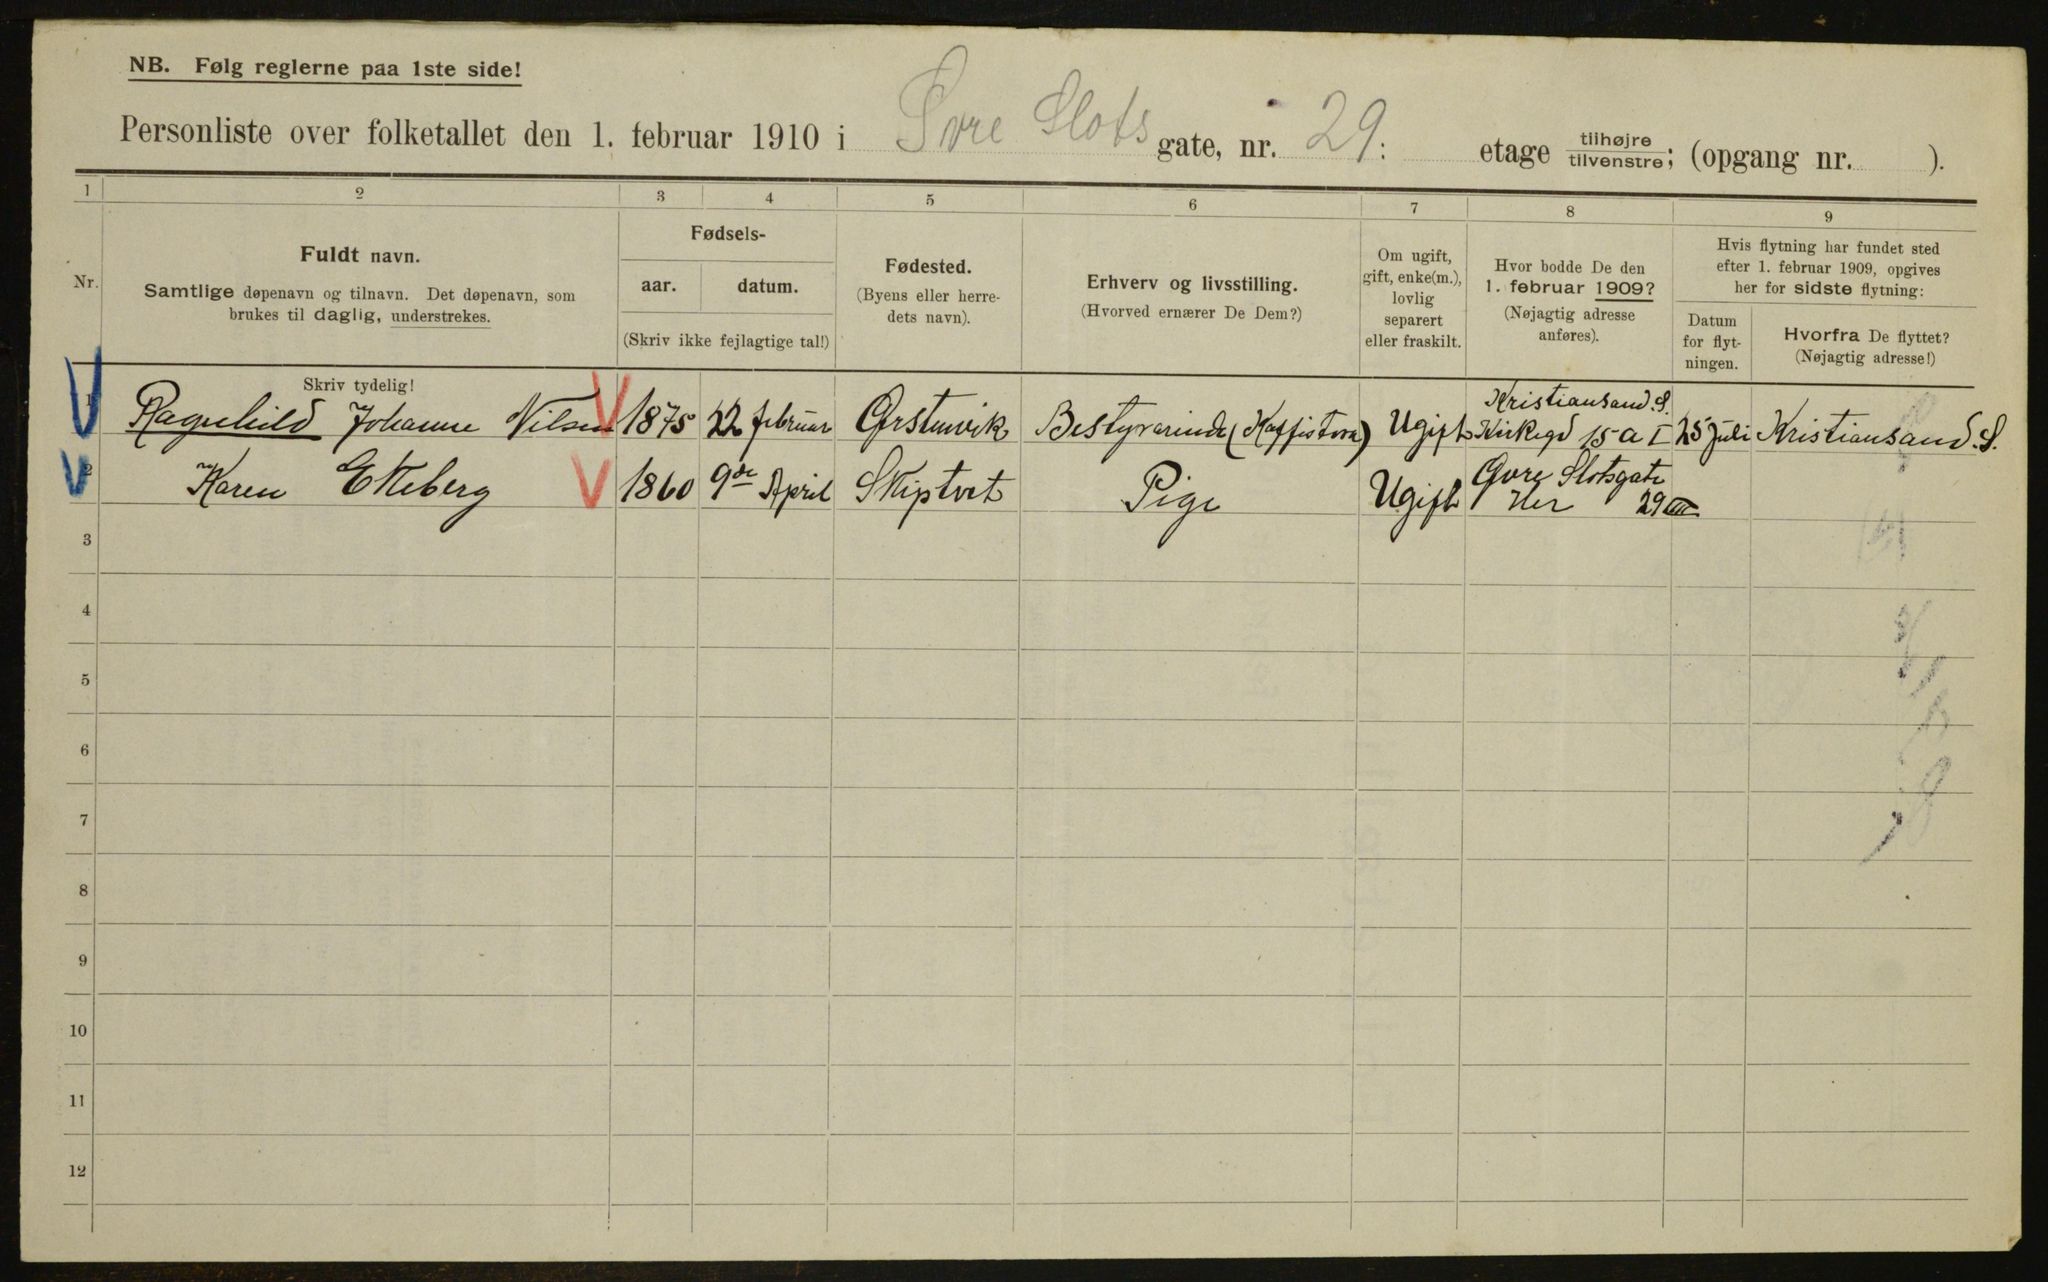 NB. Følg reglerne paa 1ste side!
Personliste over folketallet den 1. februar 1910 i Øvre Slots gate, nr. 29: etage tilhøjre tilvenstre; (opgang nr. ).
1 2 3 4 5 6 7 8 9
Nr.
Fuldt navn.
Samtlige døpenavn og tilnavn. Det døpenavn, som
brukes til daglig, understrekes.
Fødsels-
aar. datum.
(Skriv ikke fejlagtige tal!)
Fødested.
(Byens eller herre-
dets navn).
Erhverv og livsstilling.
(Hvorved ernærer De Dem?)
Om ugift,
gift, enke(m.),
lovlig
separert
eller fraskilt.
Hvor bodde De den
1. februar 1909?
(Nøjagtig adresse
anføres).
Hvis flytning har fundet sted
efter 1. februar 1909, opgives
her for sidste flytning:
Datum
for flyt-
ningen.
Hvorfra De flyttet?
(Nøjagtig adresse!)
Skriv tydelig!
1 Ragnhild Johanne Nilsen 1875 22 februar Ørstenvik Bestyrerinde (Kaffistova) Ugift Kristiansand. S. Kirkegd 15 a I 25 Juli Kristiansand. S.
2 Karen Ekeberg 1860 9de April Skiptvet Pige Ugift Øvre Slotsgate
Her 29 III
3
4
5
6
7
8
9
10
11
12